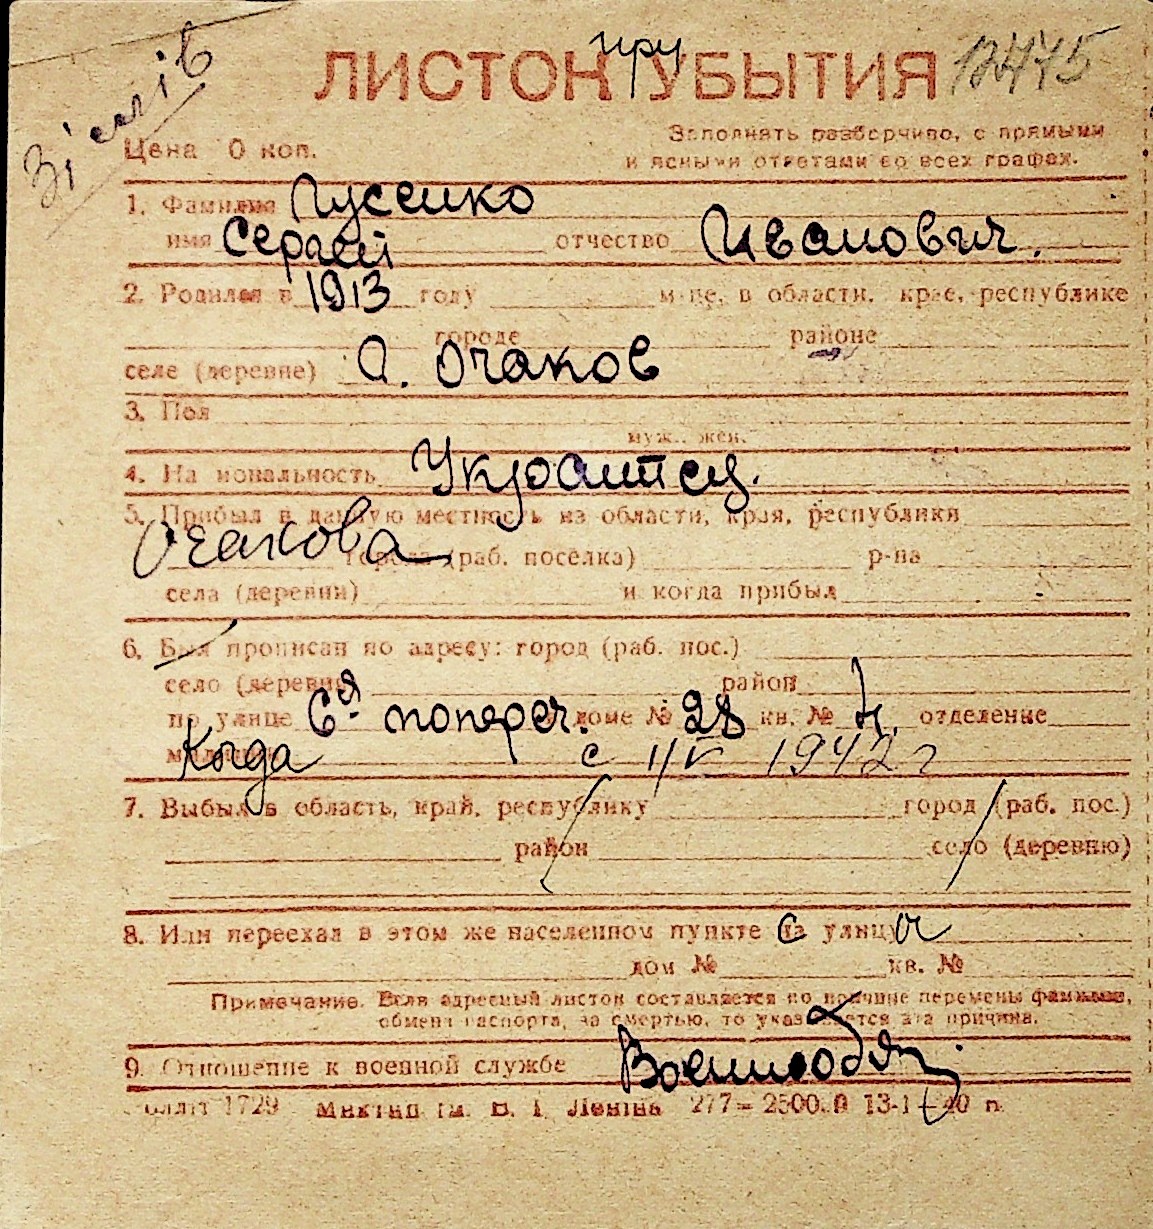 при
ЛИСТОК УБЫТИЯ
Цена 0 коп.
Заполнять разборчиво, с прямыми
и ясными ответами во всех графах.
1. Фамилия Гусейко
имя Сергей отчество Иванович.
2. Родился в 1913 году м-це, в области, крае, республике
городе районе
селе (деревне) Очаков
3. Пол
муж., жен.
4. Национальность Украинец.
5. Прибыл в данную местность из области, края, республики
Очакова города (раб. поселка) р-на
села (деревни) и когда прибыл
6. Был прописан по адресу: город (раб. пос.)
село (деревня) район
по улице 6я попереч. доме № 28 кв. № отделение
милиции Когда с 1942 г
7. Выбыл в область, край, республику город (раб. пос.)
район село (деревню)
8. Или переехал в этом же населенном пункте с улицы
дом № кв. №
Примечание. Если адресный листок составляется по причине перемены фамилии,
обмена паспорта, за смертью, то указывается эта причина.
9. Отношение к военной службе Военнообяз.
1729 им. В. І. Леніна 277 – 2500.0 13-1–40 п.